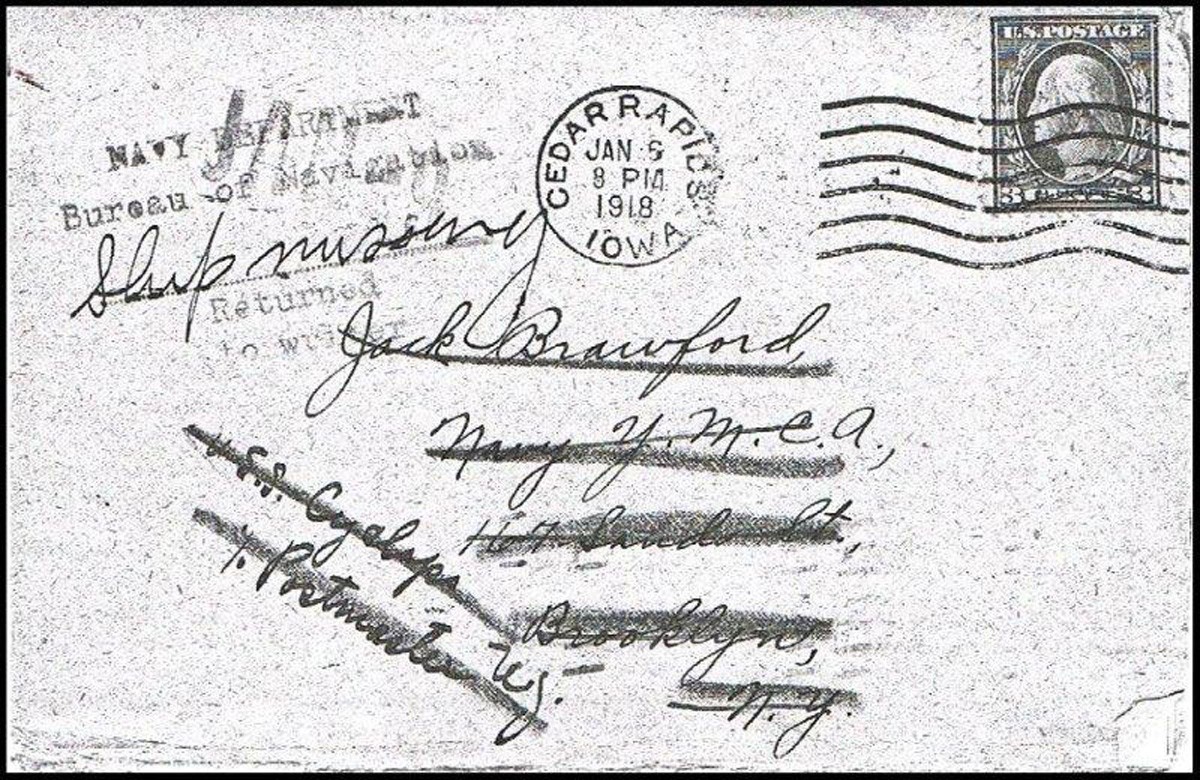 U.S. POSTAGE
3 CENTS 3
CEDAR RAPIDS
JAN 6
8 PM
1918
IOWA
NAVY DEPARTMENT
Bureau of Navigation
Ship missing
Returned
to writer
Jack Brawford,
Navy Y.M.C.A.,
167 Sands St,
Brooklyn,
N.Y.
U.S.S. Cyclops
% Postmaster NY.